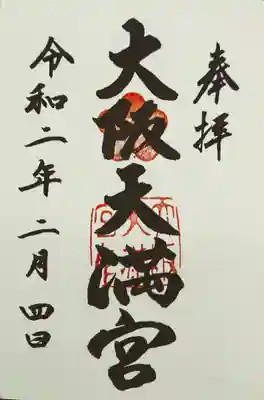 奉拝
大阪天満宮
令和二年二月四日